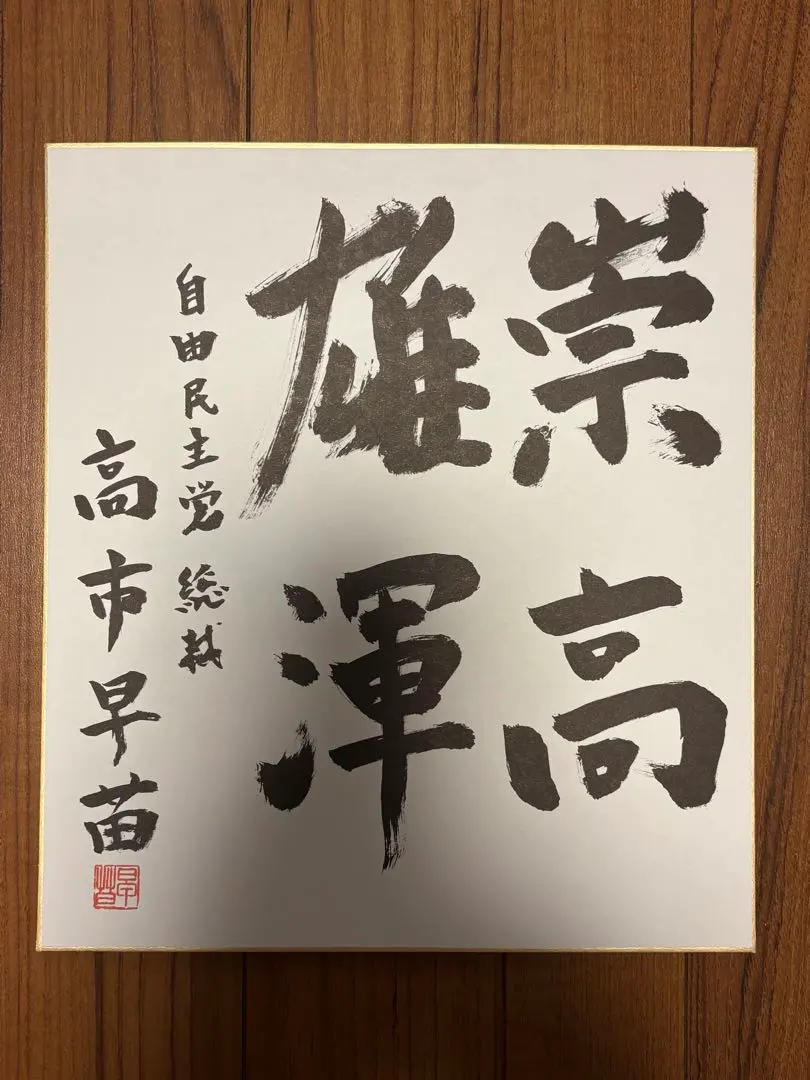 崇高
雄渾
自由民主党 総裁
高市早苗
早苗